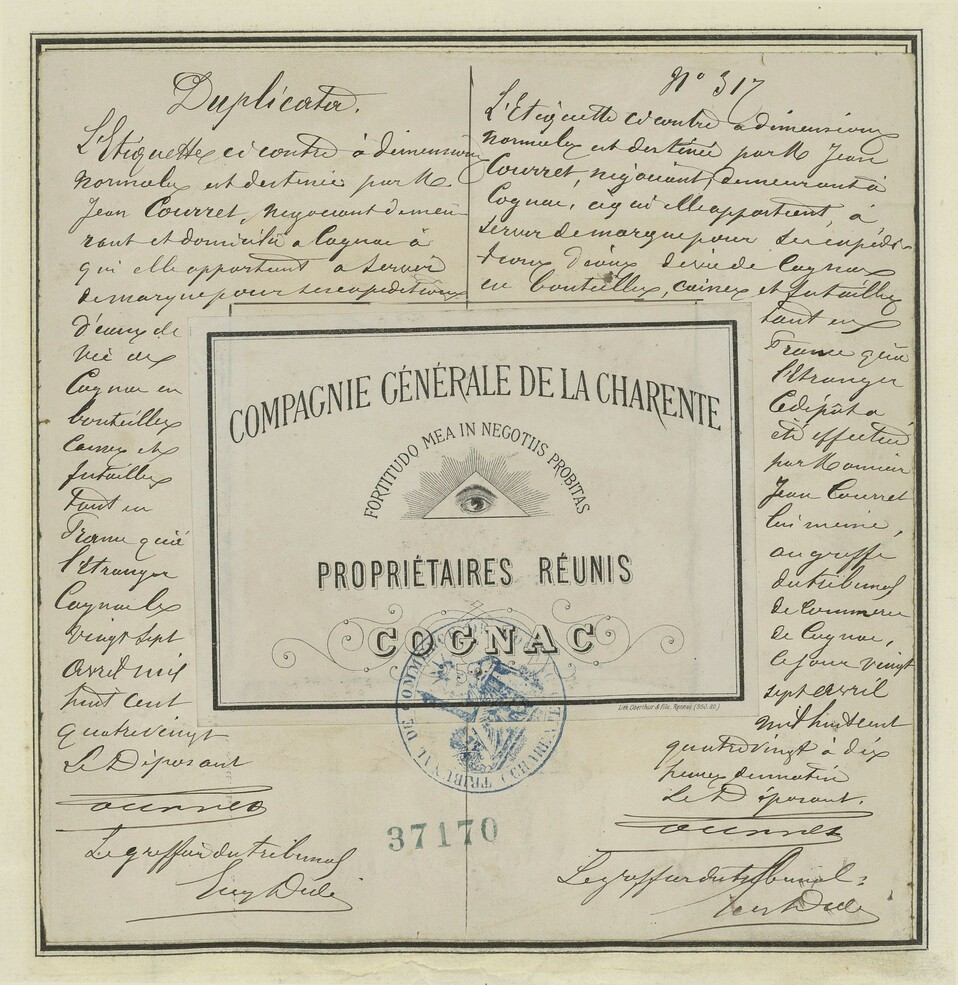 Duplicata.
L'Etiquette ci contre à dimensions
normales et destinée par M.
Jean Courret, négociant demeu-
rant et domicilié a Cognac à
qui elle appartient a servir
de marque pour ses expeditions
d'eaux de
vie de
Cognac en
bouteilles
caisses et
futailles
tant en
France qu'à
l'étranger
Cognac le
vingt sept
avril mil
huit cent
quatrevingt
Le Déposant
Le greffier du tribunal
N° 317
L'Etiquette ci contre a dimensions
normales et destinée par M Jean
Courret, négociant, demeurant à
Cognac, a qui elle appartient, à
servir de marque pour ses expédi-
tions d'eaux de vie de Cognac
en bouteilles, caisses et futailles
tant en
France qu'à
l'étranger
Le dépôt a
été effectué
par Monsieur
Jean Courret
lui meme,
au greffe
du tribunal
de Commerce
de Cognac,
le jour vingt
sept avril
mil huit cent
quatrevingt à dix
heures du matin
Le Déposant.
Le greffier du tribunal
COMPAGNIE GÉNÉRALE DE LA CHARENTE
FORTITUDO MEA IN NEGOTIIS PROBITAS
PROPRIÉTAIRES RÉUNIS
COGNAC
Lith. Oberthur & Fils, Rennes (950.80)
TRIBUNAL DE COMMERCE DE COGNAC (CHARENTE)
37170